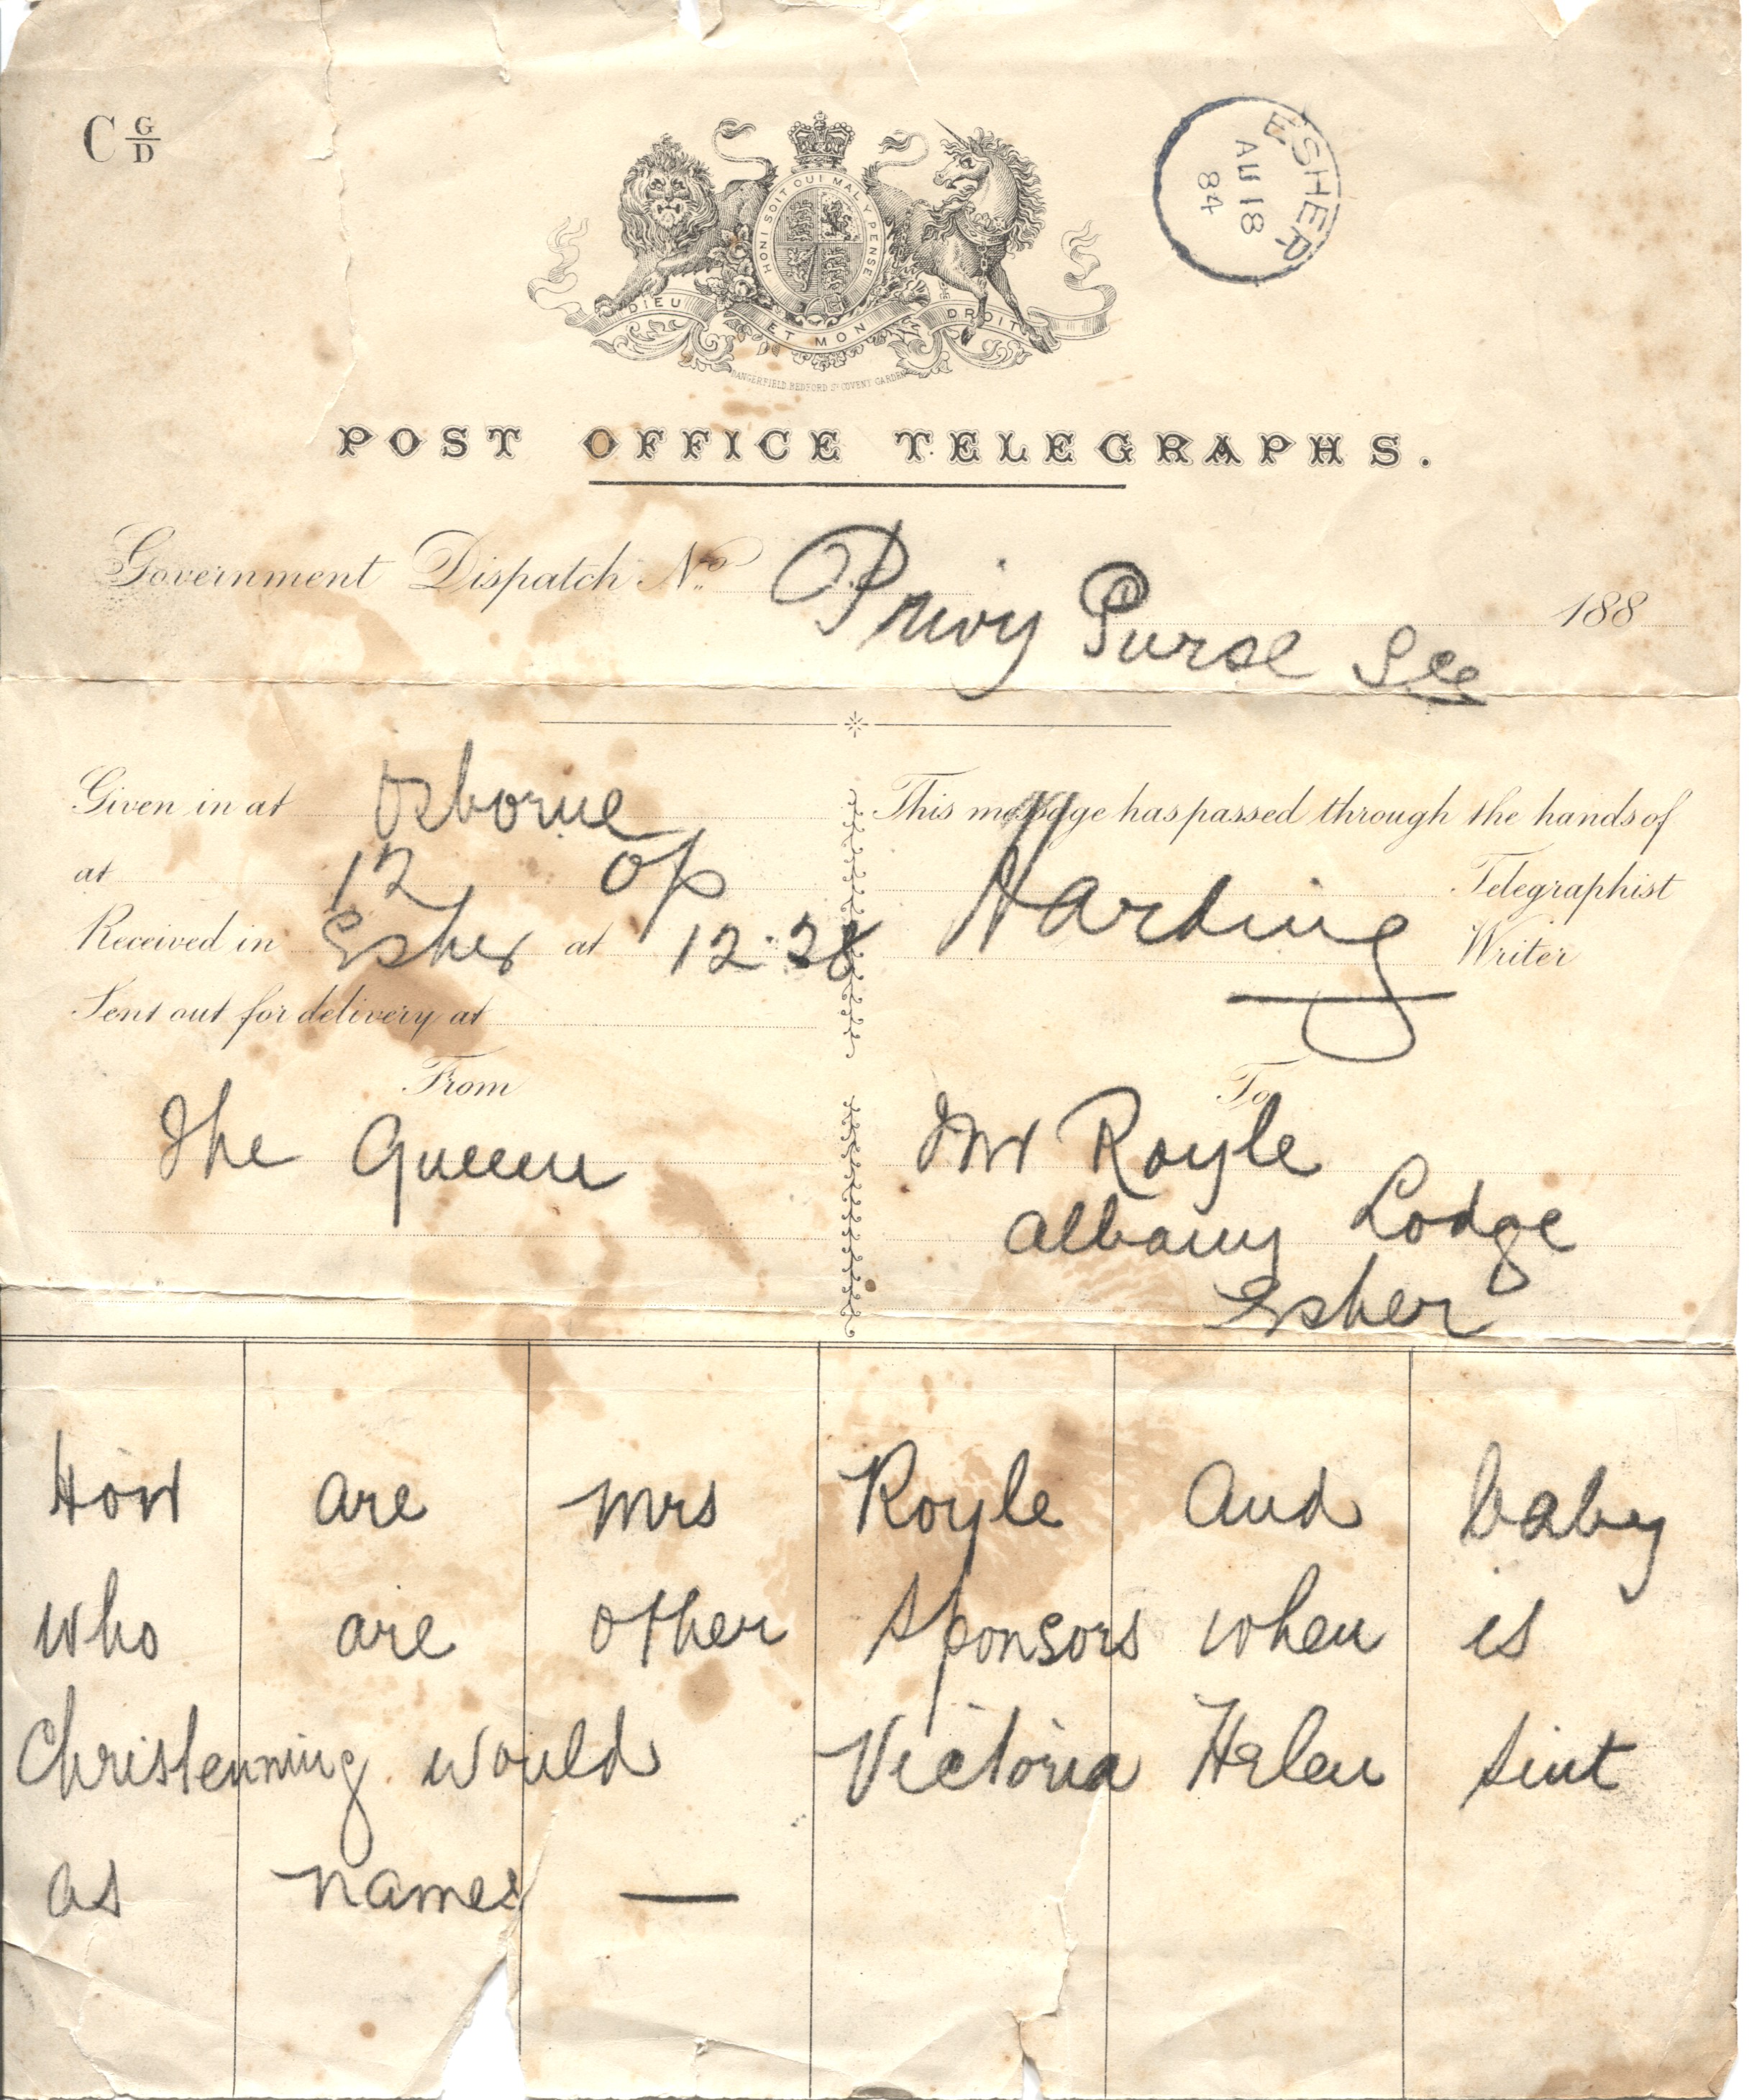 C G/D
ESHER
AU 18
84
HONI SOIT QUI MAL Y PENSE
DIEU ET MON DROIT
DANGERFIELD, BEDFORD St COVENT GARDEN
POST OFFICE TELEGRAPHS.
Government Dispatch No. Privy Purse 188
Given in at Osborne
at 12 op
Received in Esher at 12.28
Sent out for delivery at
This message has passed through the hands of
Harding Telegraphist
Writer
From
The Queen
To
Mr Royle
Albany Lodge
Esher
How are Mrs Royle and baby
who are other sponsors when is
Christenning would Victoria Helen suit
as names —